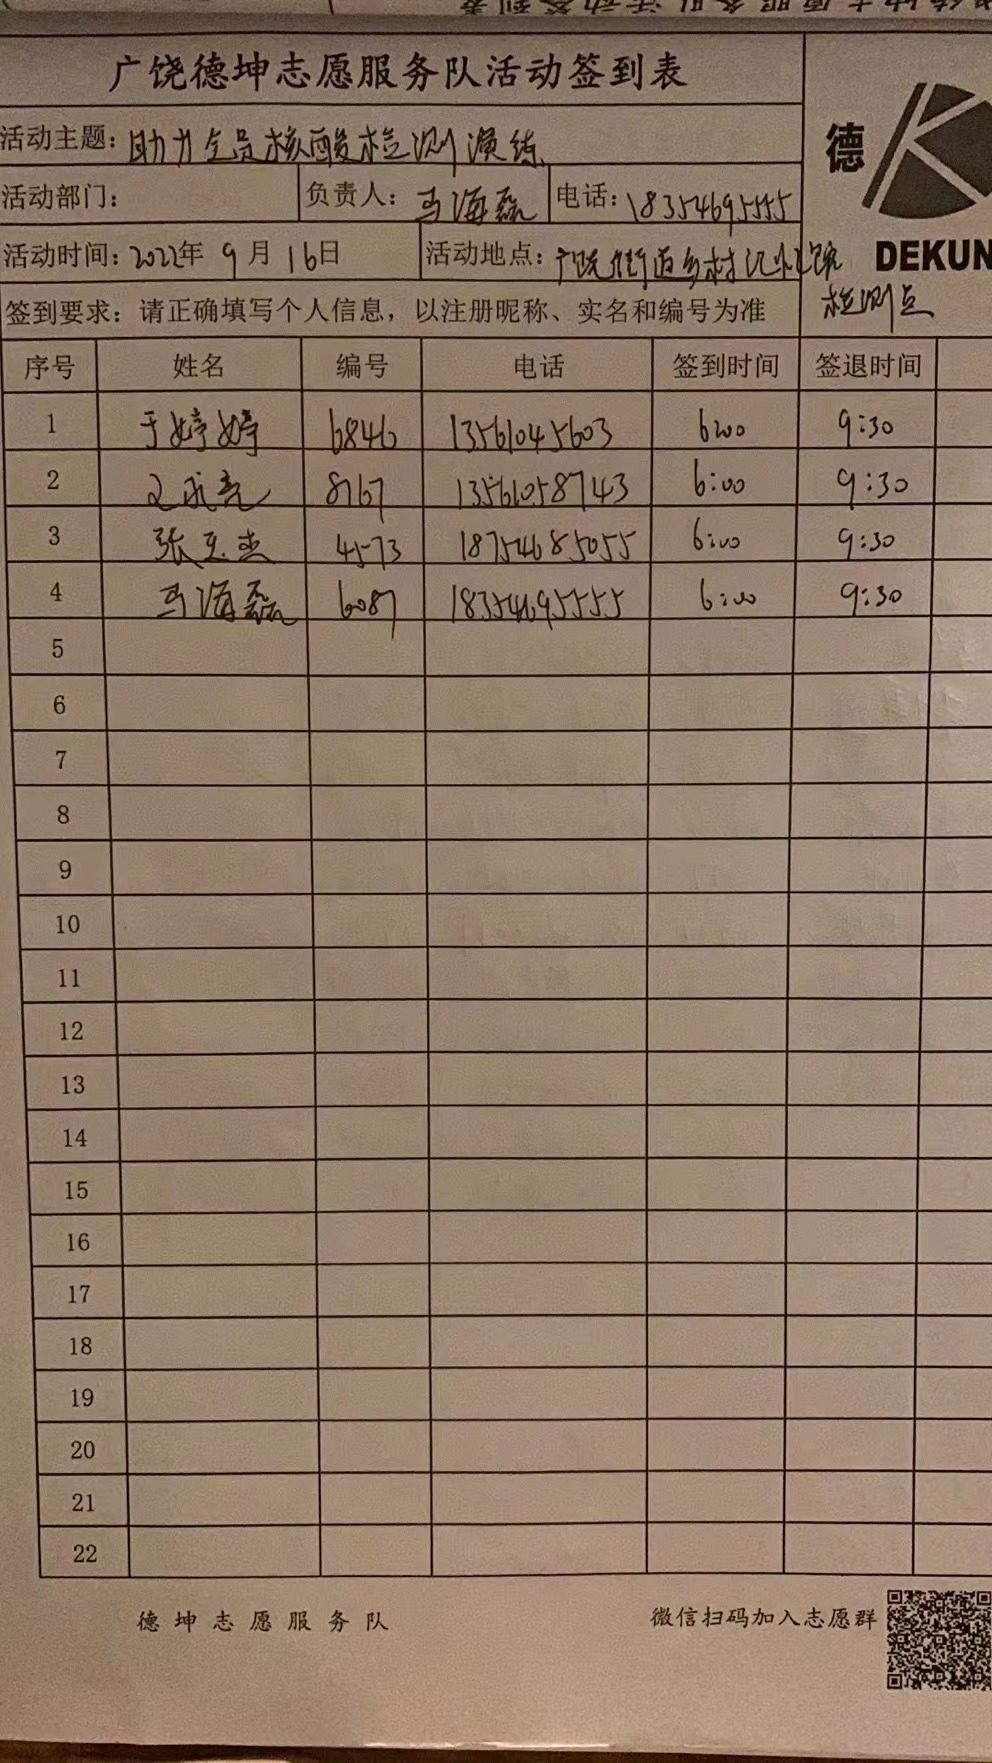 广饶德坤志愿服务队活动签到表
德
DEKUN
活动主题：助力全员核酸检测演练
活动部门： 负责人：马海磊 电话：18354695555
活动时间：2022年 9月 16日 活动地点：广饶街道乡村记忆馆
检测点
签到要求：请正确填写个人信息，以注册昵称、实名和编号为准
序号 姓名 编号 电话 签到时间 签退时间
1 于婷婷 6846 13561045603 6:00 9:30
2 8767 13561058743 6:00 9:30
3 张玉杰 4573 18754685055 6:00 9:30
4 马海磊 6087 18354695555 6:00 9:30
5
6
7
8
9
10
11
12
13
14
15
16
17
18
19
20
21
22
德坤志愿服务队 微信扫码加入志愿群